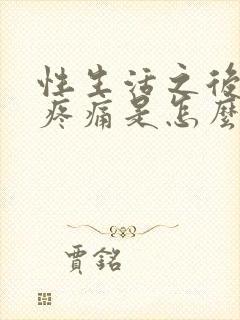 性生活之後
疼痛是怎麼
賈銘